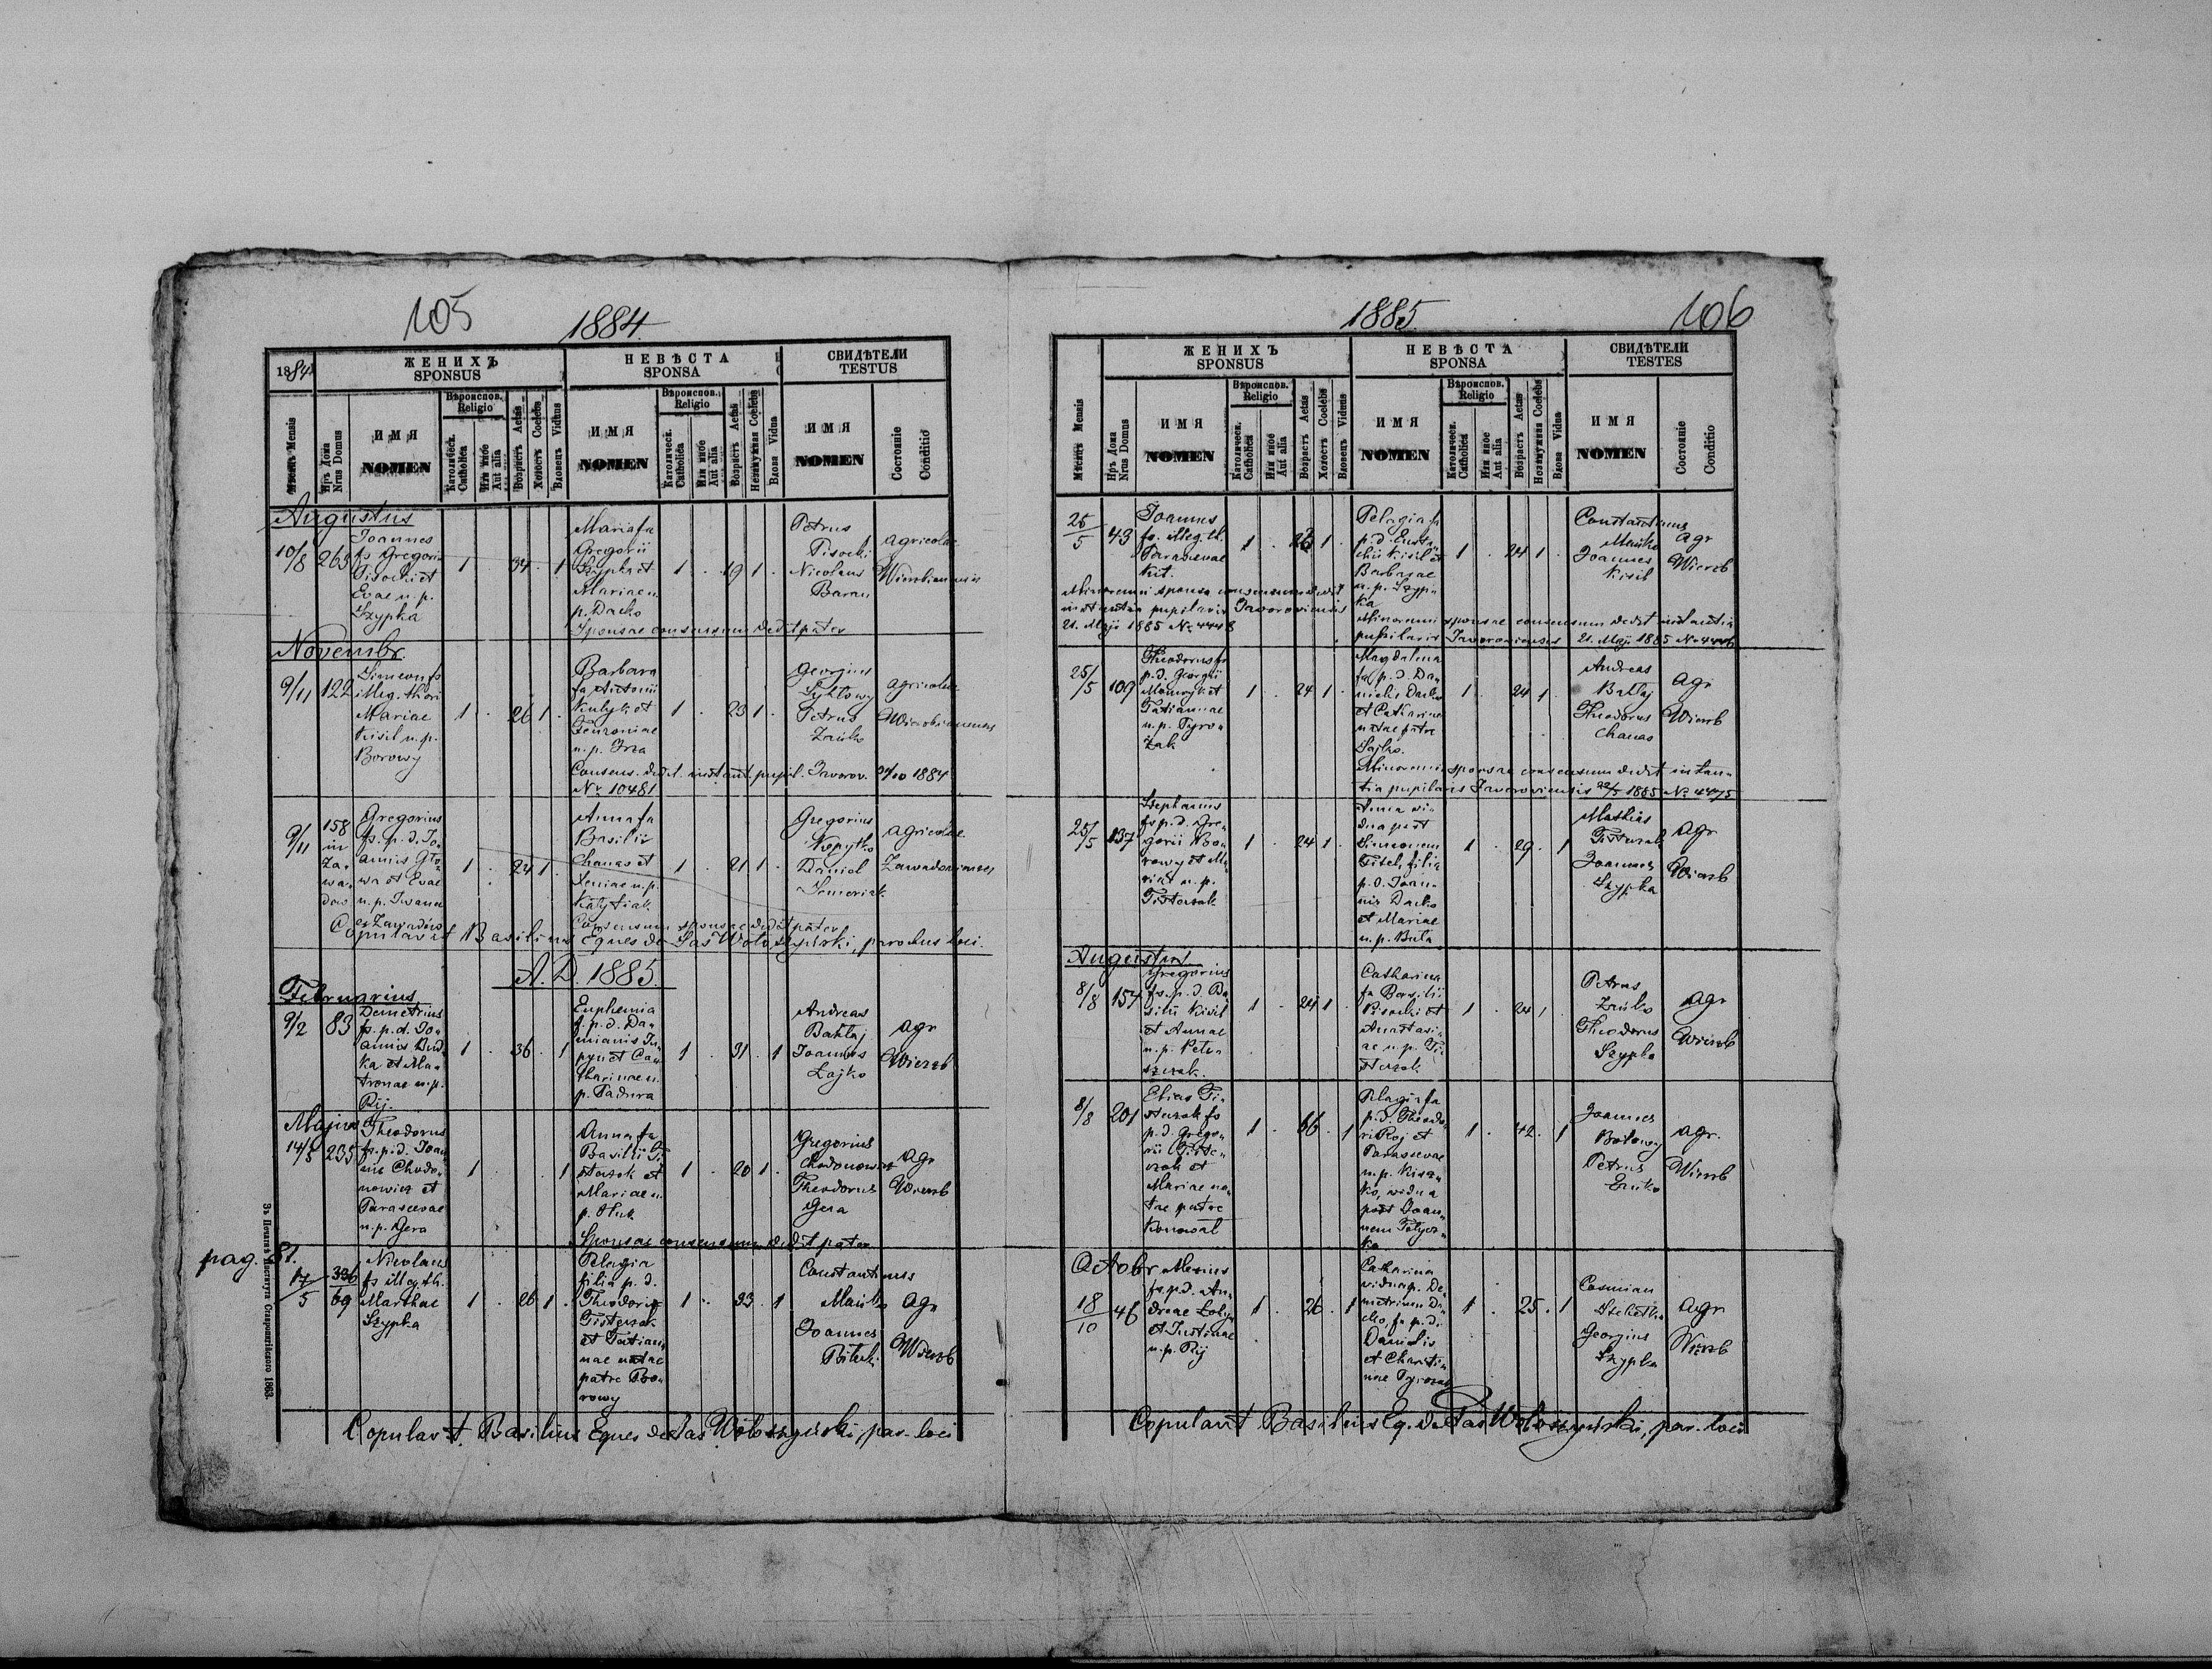 105
1884.
1884
ЖЕНИХЪ
SPONSUS
НЕВѢСТА
SPONSA
СВИДѢТЕЛИ
TESTUS
Мѣсяцъ Mensis
Нръ Дома
Nrus Domus
ИМЯ
NOMEN
Вѣроиспов.
Religio
Католическ.
Catholica
Или иное
Aut alia
Возрастъ Aetas
Холостъ Coelebs
Вдовецъ Viduus
ИМЯ
NOMEN
Вѣроиспов.
Religio
Католическ.
Catholica
Или иное
Aut alia
Возрастъ Aetas
Незамужная Coelebs
Вдова Vidua
ИМЯ
NOMEN
Состояніе
Conditio
Augustus
10/8 263
Joannes
fs Gregorii
Pisocki et
Evae n. p.
Szypka
1 . 34 . 1
Maria fa
Gregorii
Szypka et
Mariae n.
p. Dacko
1 . 19 1 .
Petrus
Pisocki
Nicolaus
Baran
agricolae
Sponsae consensum dedit pater
Novembr.
9/11 122
Simeon fs
illeg. thori
Mariae
Kisil n. p.
Borowy
1 . 26 1 .
Barbara
fa Antonii
Kulyk et
n. p.
1 . 23 1 .
Georgius
Petrus
Zańko
agricolae
Consens. dedit instant. pupil. Javorov. 1884
Nr 10481
9/11
158
in
Za-
wa-
dow
Gregorius
fs. p. d. Jo-
annis Gło-
wa et Evae
n. p. Iwana
ex Zawadów
1 . 24 1 .
Anna fa
Basilii
Chanas et
Xeniae n. p.
1 . 21 1 .
Gregorius
Kopytko
Daniel
Semeriak
agricolae
Consensum sponsae dedit pater
Copulavit Basilius Eques de Sas Wołoszyński, parochus loci.
A. D. 1885.
Februarius
9/2 83
Demetrius
fs. p. d. Jo-
annis Dud-
ka et Ma-
tronae n. p.
Rij.
1 . 36 . 1
Euphemia
f. p. d. Da-
mianis
et Ca-
tharinae n.
p. Padura
1 . 31 . 1
Andreas
Bałtaj
Joannes
Łajko
agr
Wierzb
Majus
14/5 235
Theodorus
fs. p. d. Joan
nis Chodo-
nowicz et
Parascevae
n. p. Gera
1 . . 1
Anna fa
Basilii Ti-
sterzak et
Mariae n.
p. Huk
1 . 20 1 .
Gregorius
Chodonowicz
Theodorus
Gera
agr
Wierzb
Sponsae consensum dedit pater
pag. 81.
17/5
336
69
Nicolaus
fs illeg. th.
Marthae
Szypka
1 . 26 1 .
Pelagia
filia p. d.
Theodori
Tisterzak
et Tatian-
nae natae
patre Bo-
rowy
1 . 33 . 1
Constantinus
Mańko
Joannes
agr
Wierzb
Copulavit Basilius Eques de Sas Wołoszyński, par. loci
1885.
106
ЖЕНИХЪ
SPONSUS
НЕВѢСТА
SPONSA
СВИДѢТЕЛИ
TESTES
Мѣсяцъ Mensis
Нръ Дома
Nrus Domus
ИМЯ
NOMEN
Вѣроиспов.
Religio
Католическ.
Catholica
Или иное
Aut alia
Возрастъ Aetas
Холостъ Coelebs
Вдовецъ Viduus
ИМЯ
NOMEN
Вѣроиспов.
Religio
Католическ.
Catholica
Или иное
Aut alia
Возрастъ Aetas
Незамужная Coelebs
Вдова Vidua
ИМЯ
NOMEN
Состояніе
Conditio
25/5 43
Joannes
fs. illeg. th.
Parascevae
Kit.
1 . 23 1 .
Pelagia f
p. d. Eusta-
chii Kisil et
Barbarae
n. p. Szyp-
ka
1 . 24 1 .
Constantinus
Mańko
Joannes
Kisil
agr
Wierzb
Minorenni sponso consensum dedit
instantia pupilaris Javoroviensis
21. Maji 1885 No 4448
Minorenni sponsae consensum dedit instantia
pupilaris Javoroviensis 21. Maji 1885 No 4446
25/5 109
Theodorus fs
p. d. Georgii
et
Tatiannae
n. p. Pyro-
żak
1 . 24 1 .
Magdalena
fa p. d. Da-
nielis Dacko
et Catharinae
natae patre
Łajko.
1 . 24 1 .
Andreas
Bałtaj
Theodorus
Chanas
agr
Wierzb
Minorenni sponsae consensum dedit instan-
tia pupilaris Javoroviensis 22/5 1885 No 4475
25/5 137
Stephanus
fs p. d. Gre-
gorii Bo-
rowy et Ma-
riae n. p.
Tisterzak
1 . 24 1 .
Anna vi-
dua post
Simeonem
filia
p. d. Joan-
nis Dacko
et Mariae
n. p. Buła
1 . 29 . 1
Mathias
Tisterzak
Joannes
Szypka
agr
Wierzb
Augustus.
8/8 154
Gregorius
fs. p. d. Ba
silii Kisil
et Annae
n. p. Petry-
szczak.
1 . 24 1 .
Catharina
fa Basilii
Pisocki et
Anastasi-
ae n. p. Ti-
sterzak
1 . 24 1
Petrus
Zańko
Theodorus
Szypka
agr
Wierzb
8/8 201
Elias Ti-
sterzak fs
p. d. Grego-
rii Tiste-
rzak et
Mariae na-
tae patre
Konował
1 . 66 . 1
Pelagia fa
p. d. Theodo-
ri Roj et
Parascevae
n. p.
vidua
post Joan-
nem
1 . 42 . 1
Joannes
Petrus
agr.
Wierzb
Octobr
18/10 46
Alexius
fs. p. d. An-
dreae
et Justinae
n. p. Rij
1 . 26 . 1
Catharina
vidua p. De-
metrium Da-
cko, fa p. d.
Danielis
et Chariti-
nae
1 . 25 . 1
Cosmian
Georgius
Szypka
agr
Wierzb
Copulavit Basilius Eq. de Sas Wołoszyński, par. loci